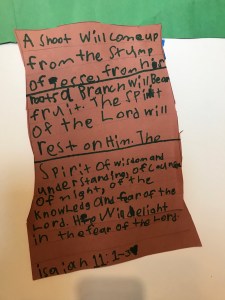 A shoot will come up
from the stump
of Jesse, from his
roots a Branch will Bear
fruit. The Spirit
of the Lord will
rest on Him. The
Spirit of wisdom and
understanding, of Counsel
of might, of the
Knowledg and fear of the
Lord. He will delight
in the fear of the Lord.
isaiah 11:1-3